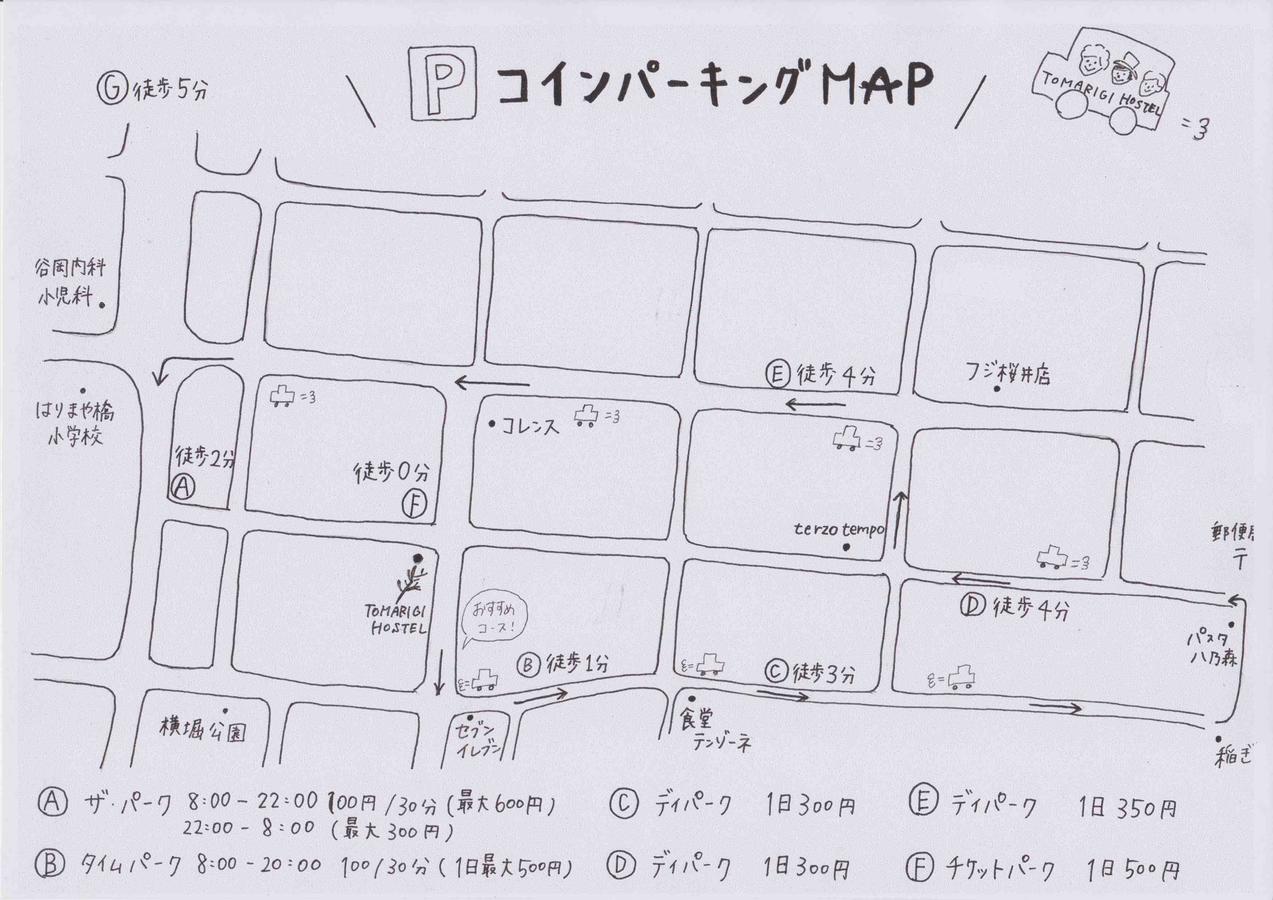 Ⓖ 徒歩5分
P コインパーキングMAP
TOMARIGI HOSTEL
=3
谷岡内科
小児科
はりまや橋
小学校
徒歩2分
Ⓐ
=3
徒歩0分
Ⓕ
コレンス
=3
Ⓔ 徒歩4分
=3
フジ桜井店
terzo tempo
=3
郵便
〒
Ⓓ 徒歩4分
TOMARIGI
HOSTEL
おすすめ
コース!
Ⓑ 徒歩1分
Ⓒ 徒歩3分
パスタ
八乃森
横堀公園
セブン
イレブン
食堂
テンゾーネ
稲ぎ
Ⓐ ザ・パーク 8:00-22:00 100円/30分(最大600円)
22:00-8:00 (最大300円)
Ⓑ タイムパーク 8:00-20:00 100/30分(1日最大500円)
Ⓒ デイパーク 1日300円
Ⓓ デイパーク 1日300円
Ⓔ デイパーク 1日350円
Ⓕ チケットパーク 1日500円